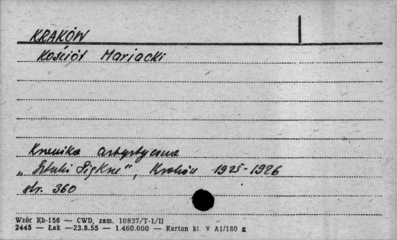 KRAKÓW
Kościół Mariacki
Kronika artystyczna
„Sztuki Piękne", Kraków 1925-1926
str. 360
Wzór Kb-156 — CWD, zam. 10837/T-1/II
2445 — Łak — 23.8.55 — 1.460.000 — Karton kl. V A1/180 g